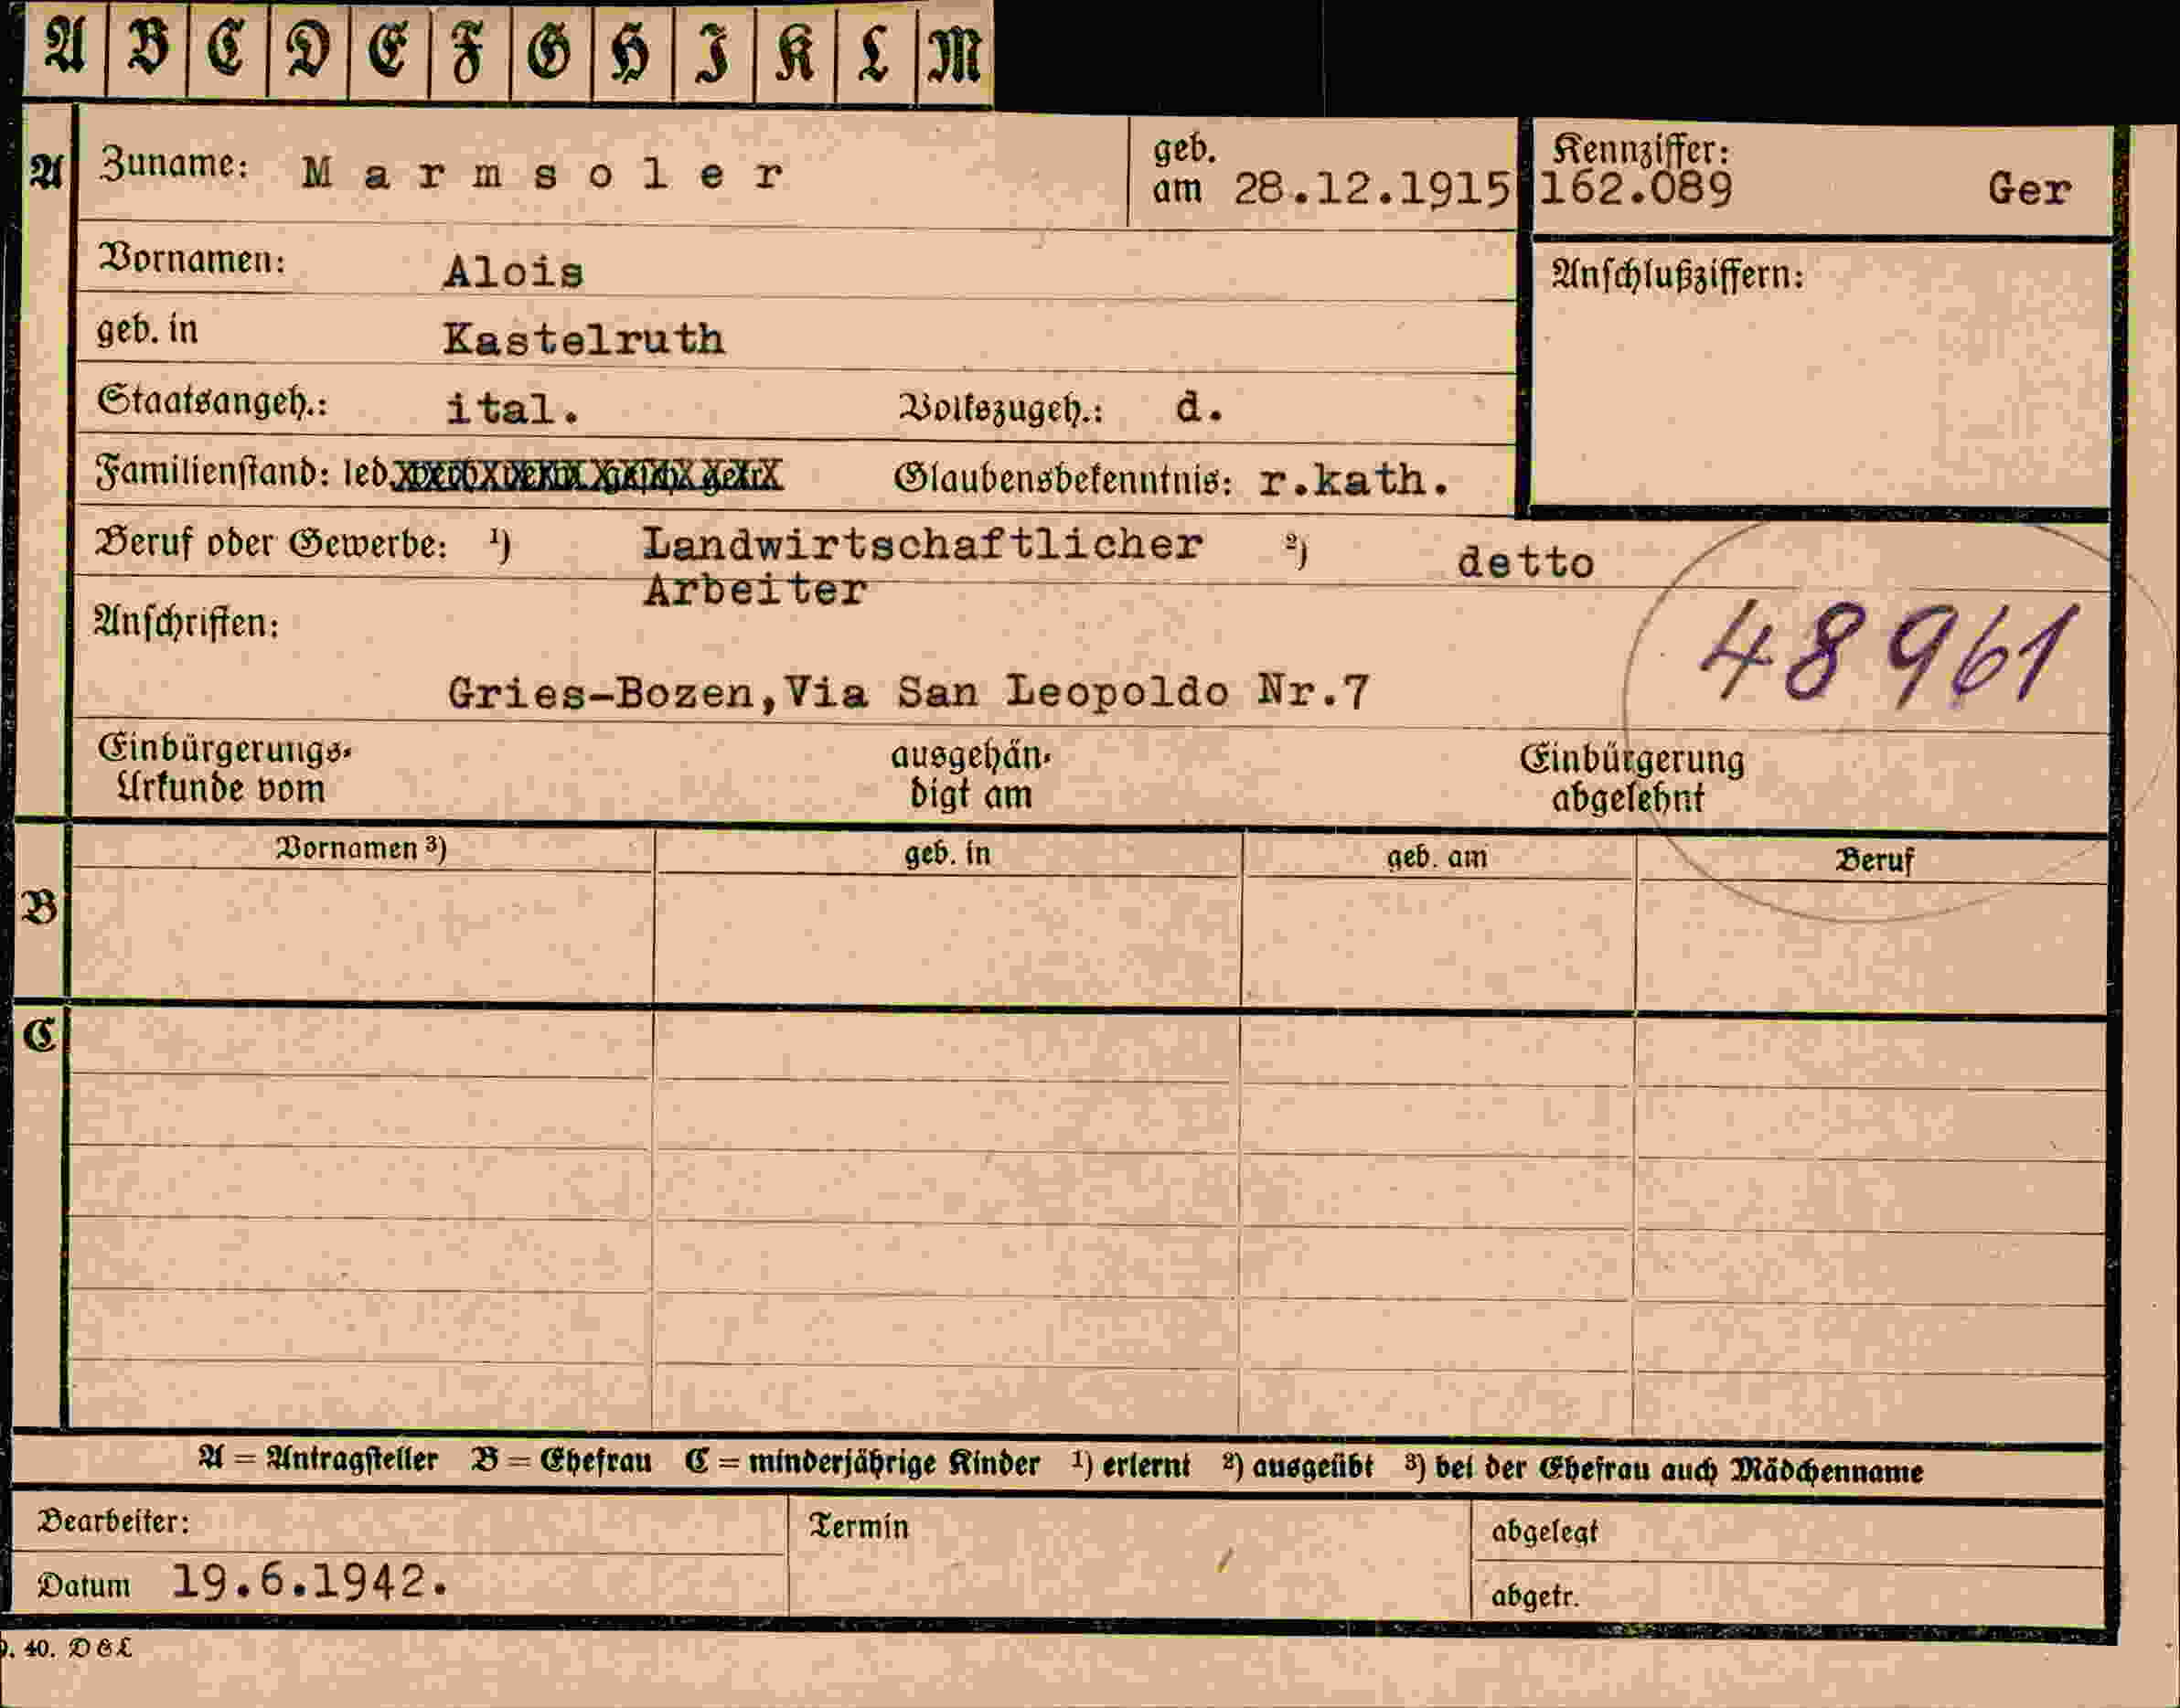 A B C D E F G H I K L M
A Zuname: Marmsoler geb. am 28.12.1915 Kennziffer: 162.089 Ger
Vornamen: Alois Anschlußziffern:
geb. in Kastelruth
Staatsangeh.: ital. Volkszugeh.: d.
Familienstand: led. Glaubensbekenntnis: r.kath.
Beruf oder Gewerbe: ¹) Landwirtschaftlicher ²) detto
Arbeiter
Anschriften:
48961
Gries-Bozen,Via San Leopoldo Nr.7
Einbürgerungs- ausgehän- Einbürgerung
Urkunde vom digt am abgelehnt
Vornamen ³) geb. in geb. am Beruf
B
C
A = Antragsteller B = Ehefrau C = minderjährige Kinder ¹) erlernt ²) ausgeübt ³) bei der Ehefrau auch Mädchenname
Bearbeiter: Termin abgelegt
Datum 19.6.1942. abgetr.
40. D